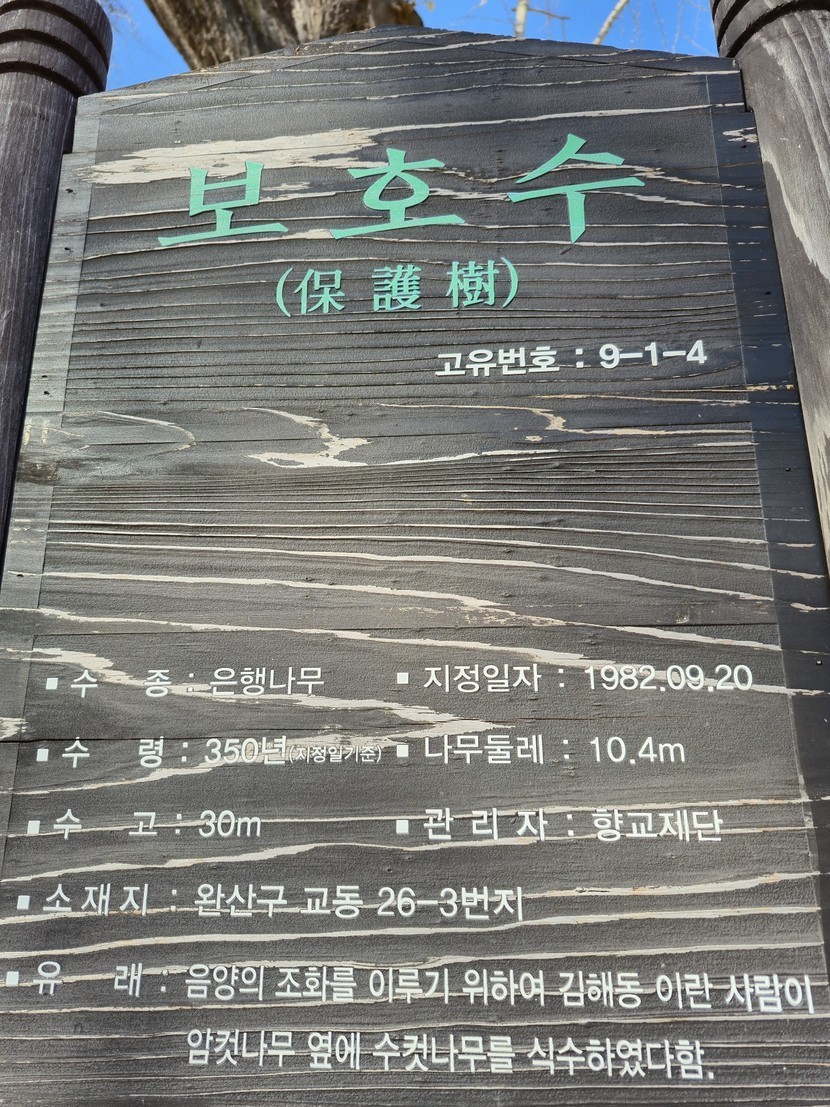 보호수
(保護樹)
고유번호 : 9-1-4
▪ 수 종 : 은행나무 ▪ 지정일자 : 1982.09.20
▪ 수 령 : 350년(지정일기준) ▪ 나무둘레 : 10.4m
▪ 수 고 : 30m ▪ 관 리 자 : 향교재단
▪ 소 재 지 : 완산구 교동 26-3번지
▪ 유 래 : 음양의 조화를 이루기 위하여 김해동 이란 사람이
암컷나무 옆에 수컷나무를 식수하였다함.